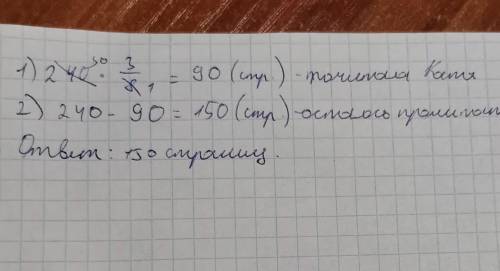 1) 240³⁰ · 3/8 ₁ = 90 (стр.) - прочитала Катя
2) 240 - 90 = 150 (стр.) - осталось прочитать
Ответ: 150 страниц.